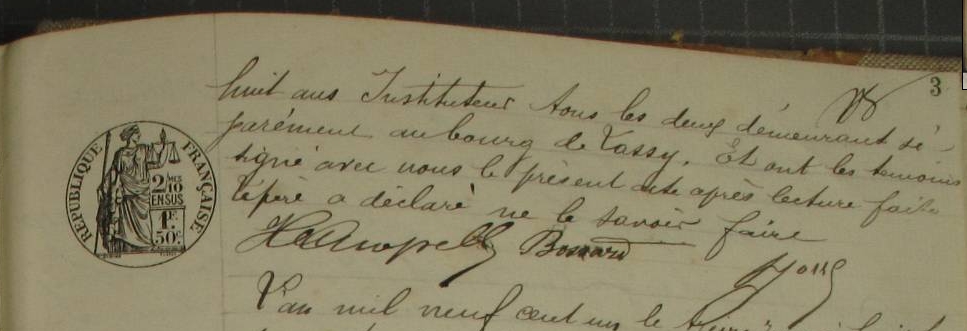 3
huit ans Instituteur tous les deux demeurant sé-
parément au bourg de Tassy. Et ont les temoins
signé avec nous le présent acte après lecture faite
le père a déclaré ne le savoir faire
RÉPUBLIQUE FRANÇAISE
2/10 MES
EN SUS
1F.
50c.
Bossard
L'an mil neuf cent un le